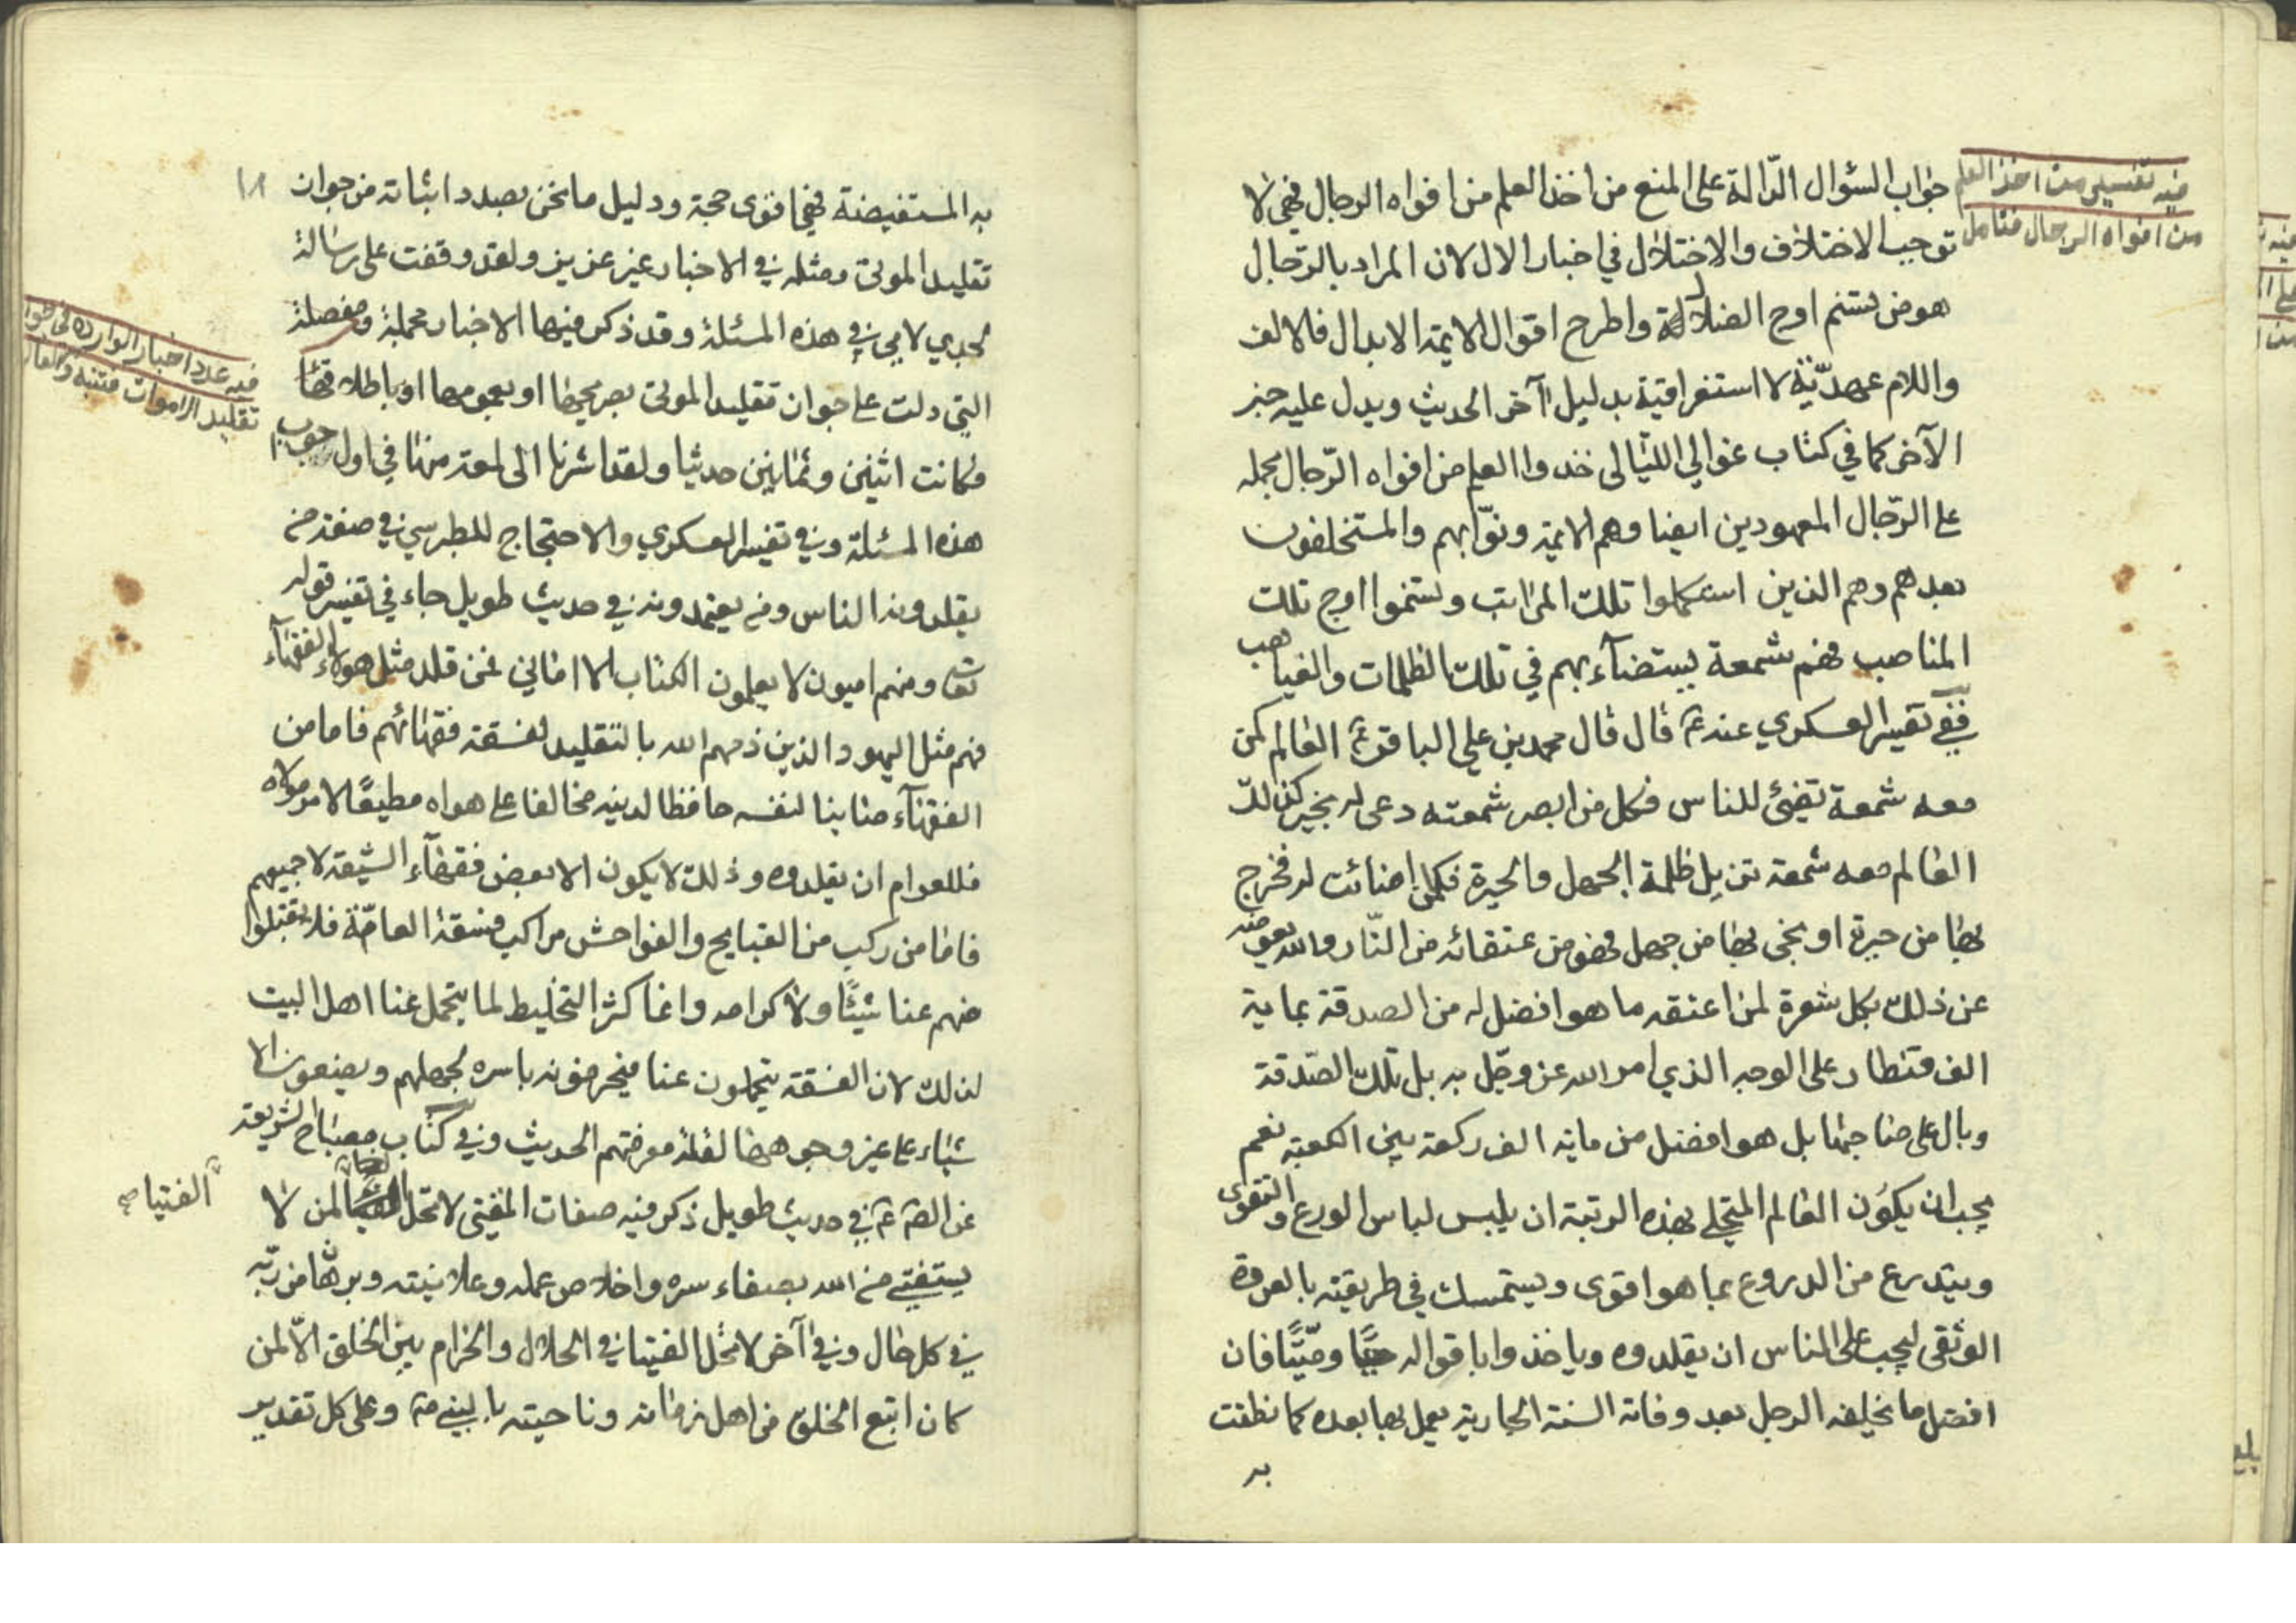 جواب السئوال الدّالة على المنع من اخذ العلم من افواه الرجال فهي لا
توجب الاختلاف والاختلال في اخبار الال لان المراد بالرّجال
هو من تسنم اوج الضلالة واطرح اقوال الايمة الابدال فالالف
واللام عهديّة لا استغراقية بدليل آخر الحديث ويدل عليه خبر
الآخر كما في كتاب غوالي اللئالى خذوا العلم من افواه الرّجال مجمله
على الرّجال المعهودين ايضا وهم الايمة ونوّابهم والمستخلفون
بعدهم وهم الذين استكملوا تلك المراتب وتسنموا اوج تلك
المناصب فهم شمعة يستضآء بهم في تلك الظلمات والغياهب
ففي تفسير العسكري عنه ع قال قال محمد بن علي الباقر ع العالم كمن
معه شمعة تضئ للناس فكل من ابصر شمعته دعى له بخير كذلك
العالم معه شمعة تزيل ظلمة الجهل والحيرة فكلمن اضائت له فخرج
بها من حيرة او نجى بها من جهل فهو من عتقائه من النّار والله يعوضه
عن ذلك بكل شعرة لمن اعتقه ما هو افضل له من الصدقة بماية
الف قنطار على الوجه الذي امر الله عز وجّل به بل تلك الصّدقة
وبال على صاحبها بل هو افضل من ماية الف ركعة بين الكعبة نعم
يجب ان يكون العالم المتحلي بهذه الرتبة ان يلبس لباس الورع والتقوى
ويتدرع من الدروع بما هو اقوى ويستمسك في طريقته بالعروة
الوثقى ليجب على الناس ان يقلدوه وياخذوا باقواله حيًّا وميّتًا فان
افضل ما يخلفه الرجل بعد وفاته السنة الجارية يعمل بها بعده كما نطقت
به
فيه تفسير من اخذ العلم
من افواه الرجال فتامل
به المستفيضة فهي اقوى حجة ودليل ما نحن بصدد اثباته من جواز
تقليد الموتى ومثله في الاخبار غير عزيز ولقد وقفت على رسالة
لجدي لامي في هذه المسئلة وقد ذكر فيها الاخبار مجملة ومفصلة
التي دلت على جواز تقليد الموتى بصريحها او بعمومها او باطلاقها
فكانت اثنين وثمانين حديثا ولقد اشرنا الى لمعة منها في اول جواب
هذه المسئلة وفي تفسير العسكري والاحتجاج للطبرسي في صفة من
يقلدونه الناس ومن يعتمدونه في حديث طويل جاء في تفسير قوله
تعالى ومنهم اميون لا يعلمون الكتاب الا اماني فمن قلد مثل هولاء الفقهآء
فهم مثل اليهود الذين ذمهم الله بالتقليد لفسقة فقهائهم فاما من
الفقهآء صاينا لنفسه حافظا لدينه مخالفا على هواه مطيعًا لامر مولاه
فللعوام ان يقلدوه وذلك لا يكون الا بعض فقهآء الشيعة لا جميعهم
فاما من ركب من القبايح والفواحش مراكب فسقة العامّة فلا تقبلوا
منهم عنا شيئًا ولا كرامه وانما كثر التخليط لما يتحمل عنا اهل البيت
لذلك لان الفسقة يتحملون عنا فيحرفونه باسره لجهلهم ويضعون الا
شياء على غير وجوهها لقلة معرفتهم الحديث وفي كتاب مصباح الشريعة
عن الصم ع في حديث طويل ذكر فيه صفات المفتي لا تحل الفتيا لمن لا
يستفتي من الله بصفاء سره واخلاص عمله وعلانيته وبرهان من ربّه
في كل حال وفي آخر لا تحل الفتيا في الحلال والحرام بين الخلق الّا لمن
كان اتبع الخلق من اهل زمانه وناحيته بالنبي ص وعلى كل تقدير
فيه عدد اخبار الوارده في جواز
تقليد الاموات فتنبه
الفتيا صح